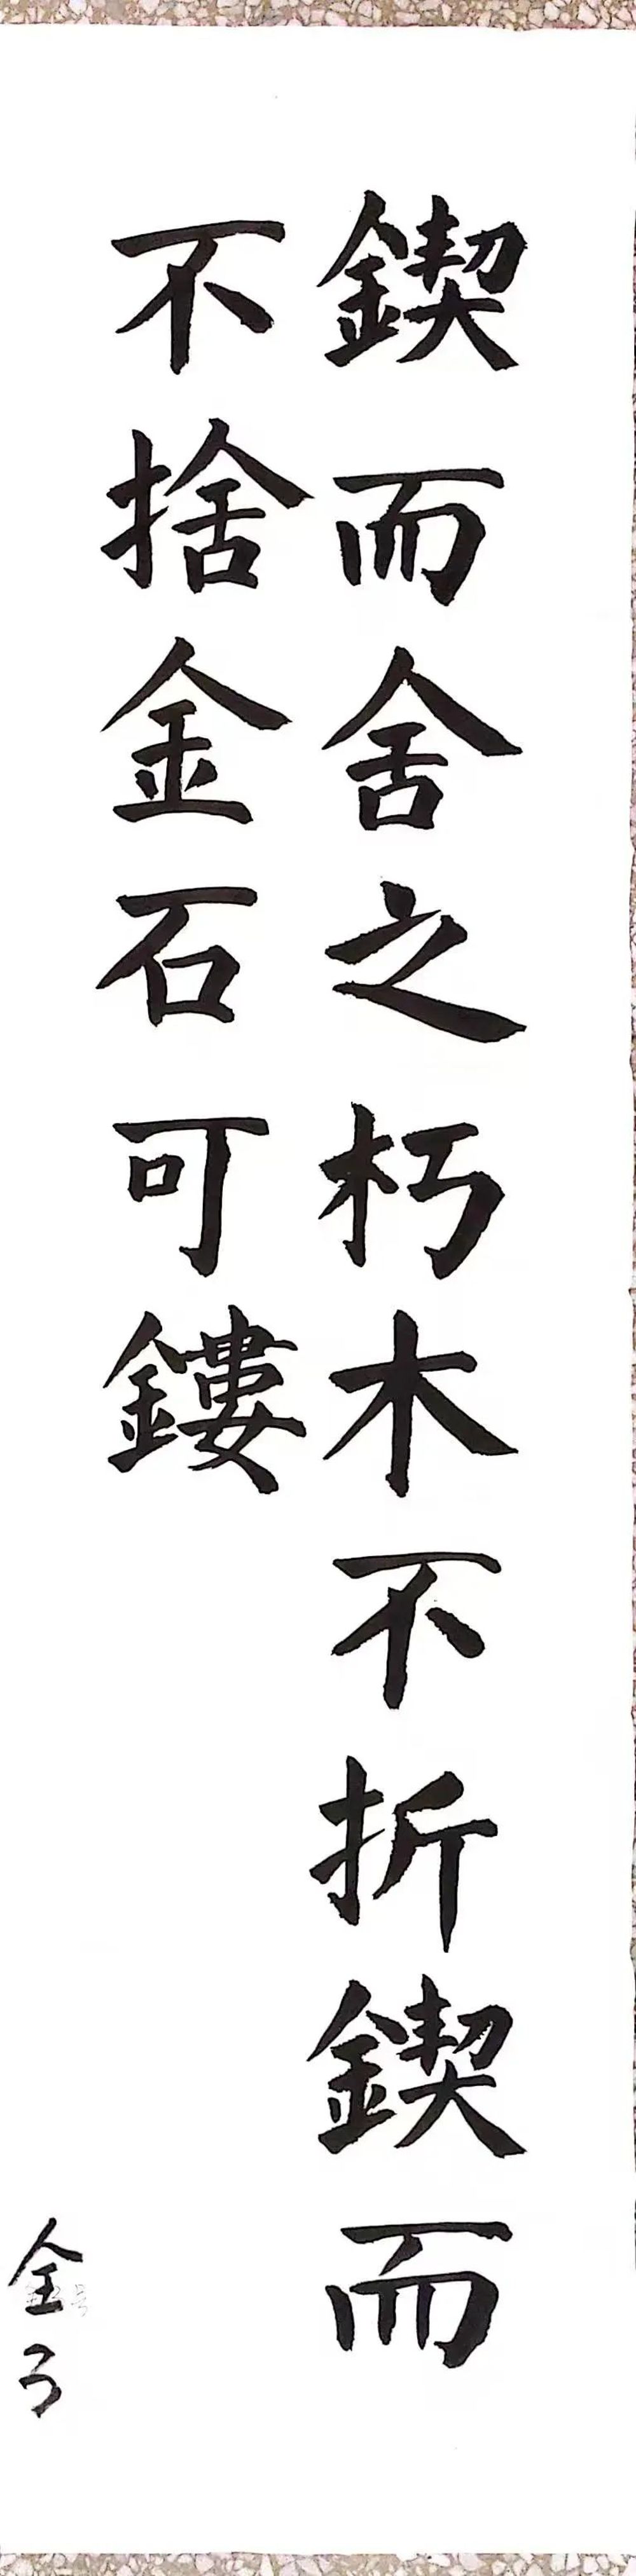 鍥而舍之朽木不折鍥而
不捨金石可鏤